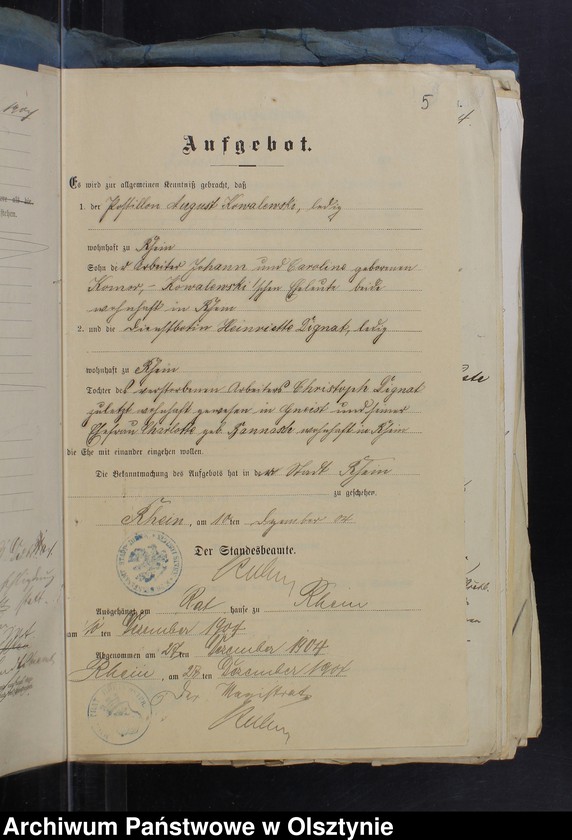 1904
5
4.
Aufgebot.
Es wird zur allgemeinen Kenntniß gebracht, daß
1. der Postillon August Kowalewski, ledig
wohnhaft zu Rhein
Sohn der Arbeiter Johann und Caroline geborenen
Komor, - Kowalewski'schen Eheleute beide
wohnhaft in Rhein
2. und die Dienstbotin Heinriette Dignat, ledig
wohnhaft zu Rhein
Tochter des verstorbenen Arbeiters Christoph Dignat
zuletzt wohnhaft gewesen in Gneist und seiner
Ehefrau Charlotte geb. Pannasch wohnhaft in Rhein
die Ehe mit einander eingehen wollen.
Die Bekanntmachung des Aufgebots hat in der Stadt Rhein
zu geschehen.
Rhein, am 10ten Dezember 04
Der Standesbeamte.
Ausgehängt am Rat hause zu Rhein
am 10ten Dezember 1904
Abgenommen am 27ten Dezember 1904
Rhein, am 28ten Dezember 1904
Der Magistrat
Archiwum Państwowe w Olsztynie